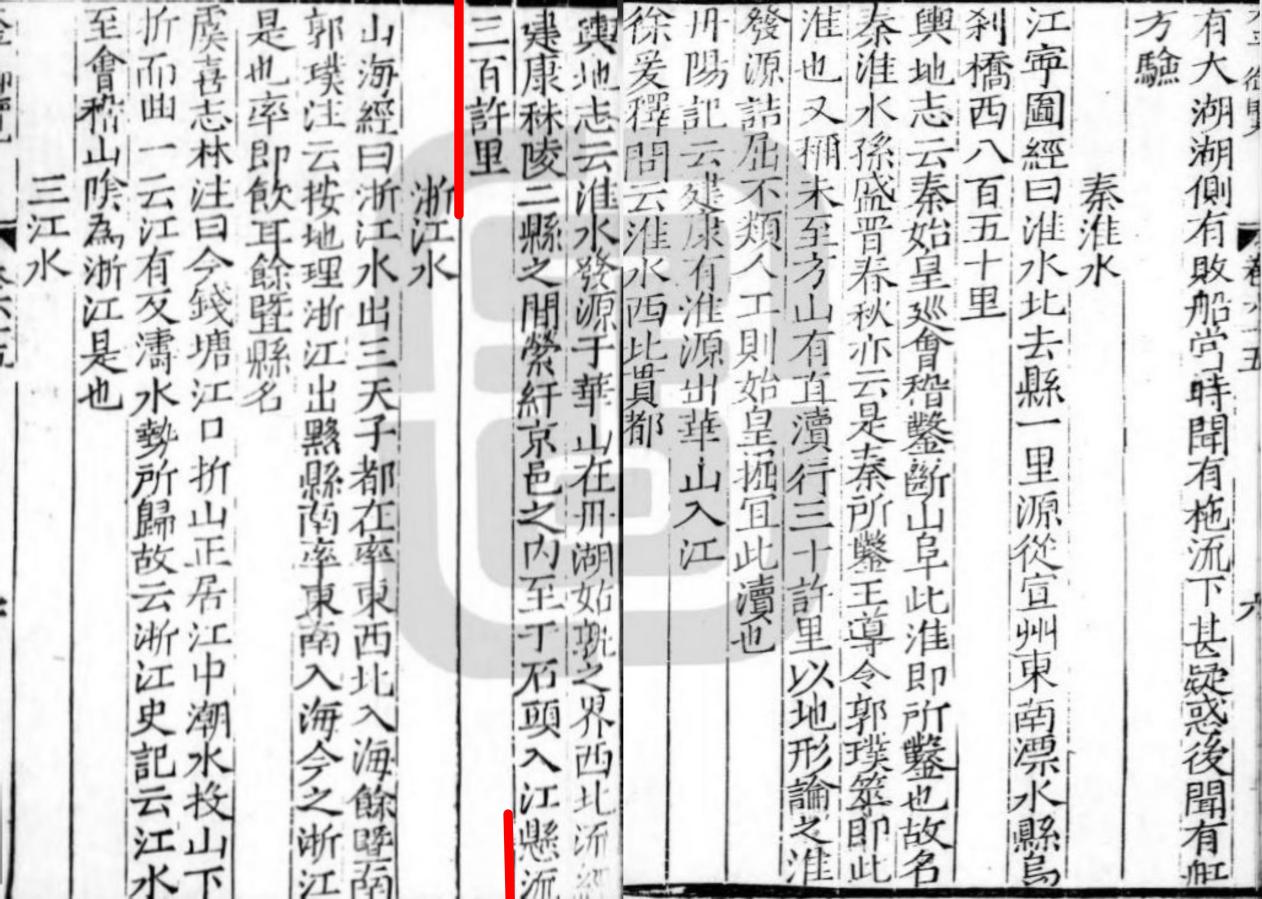 有大湖湖側有敗船當時聞有柂流下甚疑惑後聞有舡
方驗
秦淮水
江寧圖經曰淮水北去縣一里源從宣州東南漂水縣烏
刹橋西八百五十里
輿地志云秦始皇廵會稽鑿斷山阜此淮即所鑿也故名
秦淮水孫盛晋春秋亦云是秦所鑿王導令郭璞筮即此
淮也又稱未至方山有直瀆行三十許里以地形論之淮
發源詰屈不類人工則始皇掘冝此瀆也
丹陽記云建康有淮源出華山入江
徐爰釋問云淮水西北貫都
輿地志云淮水發源于華山在丹湖姑孰之界西北流經
建康秣陵二縣之間縈紆京邑之内至于石頭入江懸流
三百許里
浙江水
山海經曰浙江水出三天子都在率東西北入海餘曁南
郭璞注云按地理浙江出黟縣南率東南入海今之浙江
是也率即歙耳餘曁縣名
虞喜志林注曰今錢塘江口折山正居江中潮水投山下
折而曲一云江有反濤水勢所歸故云浙江史記云江水
至會稽山隂為浙江是也
三江水